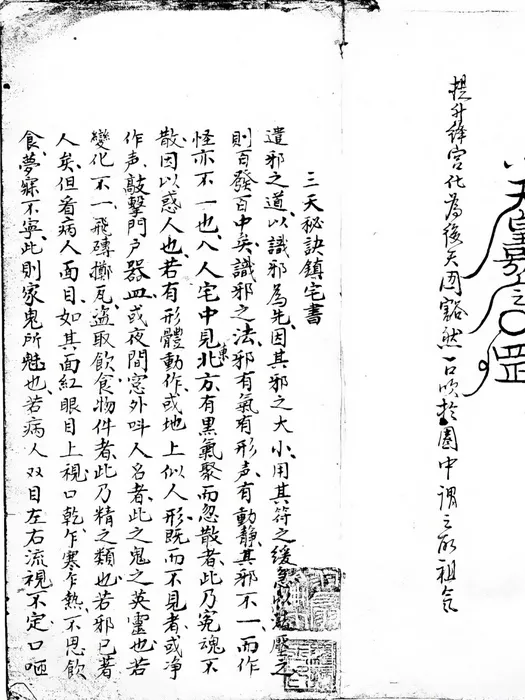 提升絳宮化為後天圈豁然一口吹於圈中謂之取祖令
三天秘訣鎮宅書
遣邪之道以識邪為先因其邪之大小用其符之緩急以法壓之
則百發百中矣識邪之法邪有氣有形声有動静其邪不一而作
怪亦不一也入人宅中見北東方有黒氣聚而忽散者此乃冤魂不
散因以惑人也若有形體動作或地上似人形既而不見者或净
作声敲擊門户器皿或夜間窓外呌人名者此之鬼之英靈也若
變化不一飛磚擲瓦盗取飲食物件者此乃精之類也若邪已著
人矣但看病人面目如其面紅眼目上視口乾乍寒乍熱不思飲
食夢寐不寧此則家鬼所魅也若病人双目左右流視不定口咂